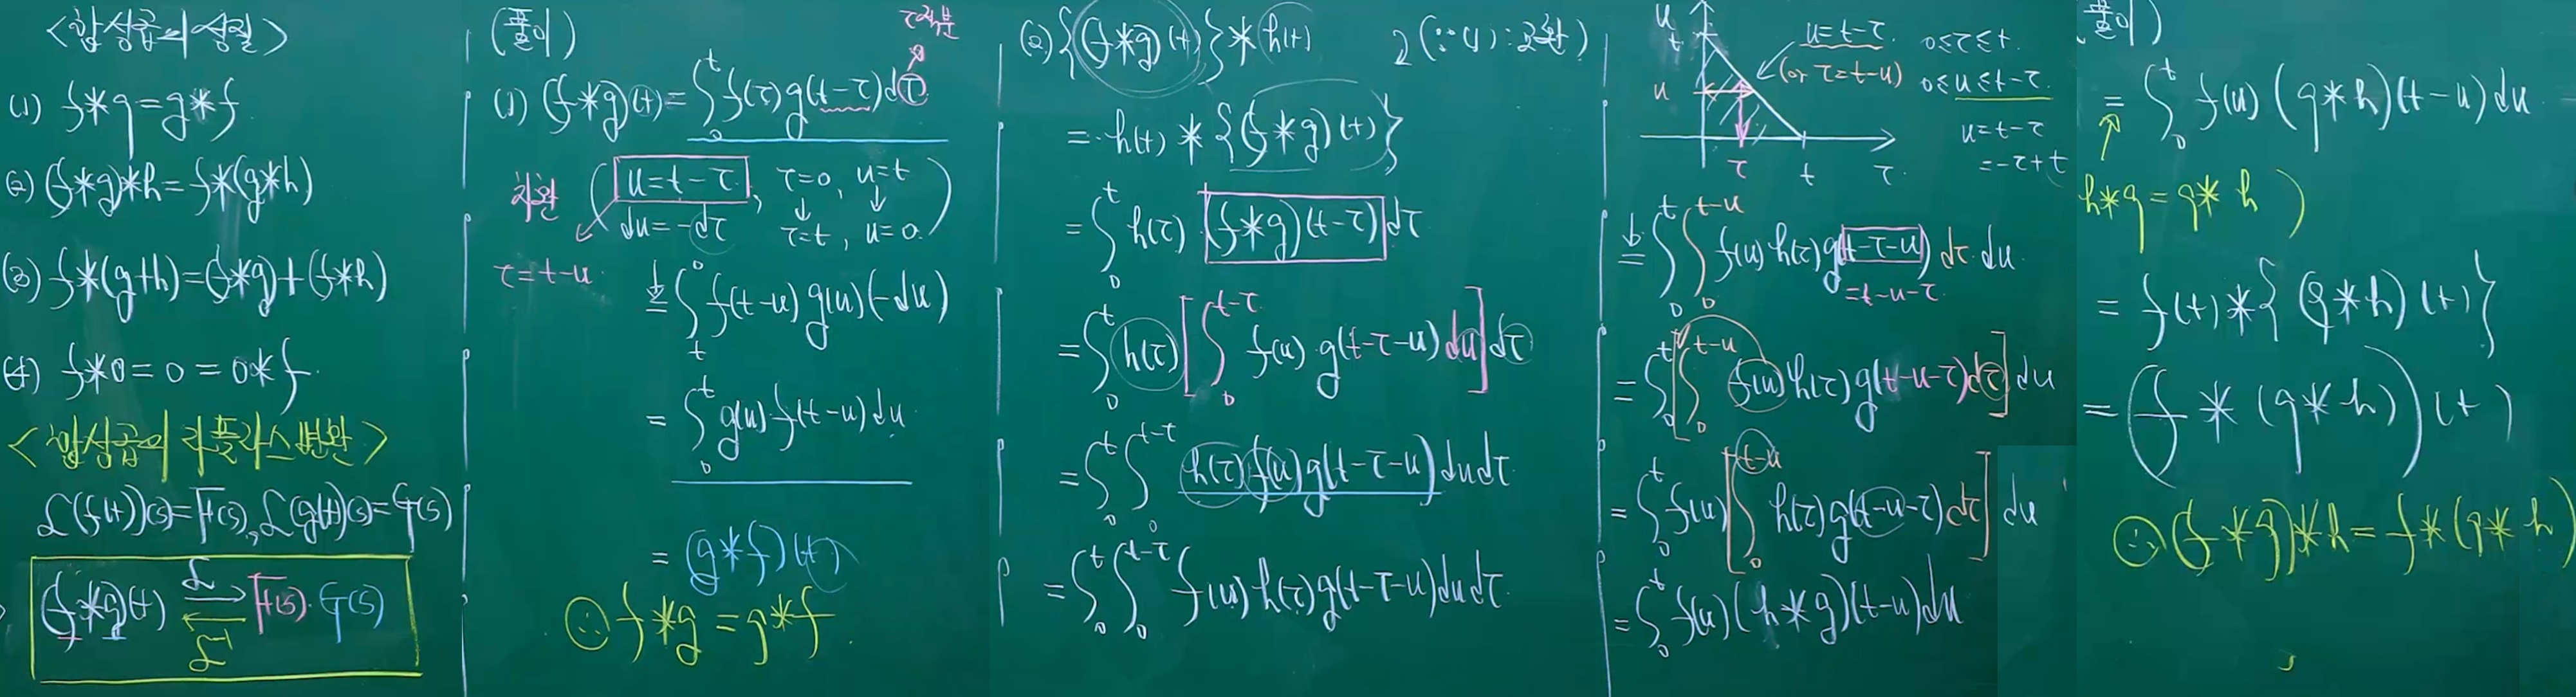 <합성곱의 성질>
(1) f*g=g*f
(2) (f*g)*h=f*(g*h)
(3) f*(g+h)=(f*g)+(f*h)
(4) f*0=0=0*f
<합성곱의 라플라스변환>
ℒ(f(t))(s)=F(s), ℒ(g(t))(s)=G(s)
(f*g)(t) ℒ→ ←ℒ⁻¹ F(s)·G(s)
(풀이)
τ적분
(1) (f*g)(t)=∫₀ᵗ f(τ)g(t-τ)dτ
치환 (u=t-τ, τ=0, u=t
du=-dτ τ=t, u=0)
τ=t-u
=∫ₜ⁰ f(t-u)g(u)(-du)
=∫₀ᵗ g(u)f(t-u)du
=(g*f)(t)
∴ f*g=g*f
(2) {(f*g)(t)}*h(t) (∵(1):교환)
=h(t)*{(f*g)(t)}
=∫₀ᵗ h(τ)(f*g)(t-τ)dτ
=∫₀ᵗ h(τ)[∫₀ᵗ⁻ᵗ f(u)·g(t-τ-u)du]dτ
=∫₀ᵗ∫₀^(t-τ) h(τ)f(u)g(t-τ-u)dudτ
=∫₀ᵗ∫₀^(t-τ) f(u)h(τ)g(t-τ-u)dudτ
u
t
u=t-τ
(or τ=t-u)
0≤τ≤t
0≤u≤t-τ
u=t-τ
=-τ+t
u
τ t τ
=∫₀ᵗ∫₀^(t-u) f(u)h(τ)g(t-τ-u)dτdu
=t-u-τ
=∫₀ᵗ[∫₀^(t-u) f(u)h(τ)g(t-u-τ)dτ]du
=∫₀ᵗ f(u)[∫₀^(t-u) h(τ)g(t-u-τ)dτ]du
=∫₀ᵗ f(u)(h*g)(t-u)du
풀이)
=∫₀ᵗ f(u)(g*h)(t-u)du
↑
h*g=g*h)
=f(t)*{(g*h)(t)}
=(f*(g*h))(t)
∴ (f*g)*h=f*(g*h)